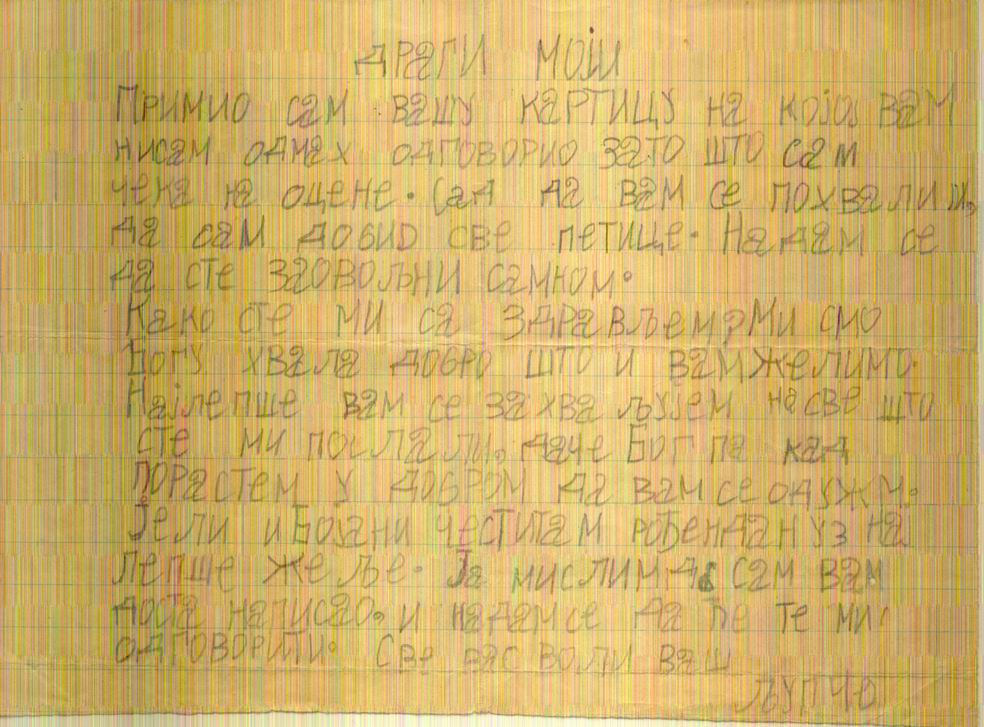 ДРАГИ МОЈИ
ПРИМИО САМ ВАШУ КАРТИЦУ НА КОЈОЈ ВАМ
НИСАМ ОДМАХ ОДГОВОРИО ЗАТО ШТО САМ
ЧЕКА НА ОЦЕНЕ. САД ДА ВАМ СЕ ПОХВАЛИМ,
ДА САМ ДОБИО СВЕ ПЕТИЦЕ. НАДАМ СЕ
ДА СТЕ ЗАОВОЉНИ САМНОМ.
КАКО СТЕ МИ СА ЗДРАВЉЕМ? МИ СМО
БОГУ ХВАЛА ДОБРО ШТО И ВАМ ЖЕЛИМО.
НАЈЛЕПШЕ ВАМ СЕ ЗАХВАЉУЈЕМ НА СВЕ ШТО
СТЕ МИ ПОСЛАЛИ. ДАЧЕ БОГ ПА КАД
ПОРАСТЕМ У ДОБРОМ ДА ВАМ СЕ ОДУЖМ.
ЈЕЛИ И БОЈАНИ ЧЕСТИТАМ РОЂЕНДАН УЗ НА
ЛЕПШЕ ЖЕЉЕ. ЈА МИСЛИМ ДА САМ ВАМ
ДОСТА НАПИСАО. И НАДАМ СЕ ДА ЋЕ ТЕ МИ
ОДГОВОРИТИ. СВЕ ВАС ВОЛИ ВАШ
ЉУПЧО